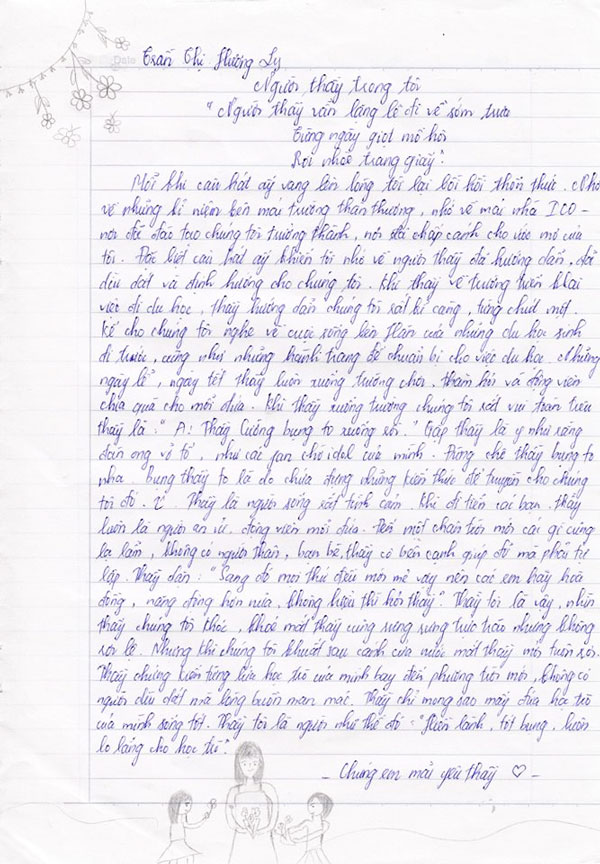 Trần Thị Hương Ly
Người thầy trong tôi
"Người thầy vẫn lặng lẽ đi về sớm trưa
Từng ngày giọt mồ hôi
Rơi nhoè trang giấy".
Mỗi khi câu hát ấy vang lên lòng tôi lại bồi hồi thổn thức. Nhớ
về những kỉ niệm bên mái trường thân thương, nhớ về mái nhà ICO -
nơi đã đào tạo chúng tôi trưởng thành, nơi đã chắp cánh cho ước mơ của
tôi. Đặc biệt câu hát ấy khiến tôi nhớ về người thầy đã hướng dẫn, đã
dìu dắt và định hướng cho chúng tôi. Khi thầy về trường triển khai
việc đi du học, thầy hướng dẫn chúng tôi rất kĩ càng, từng chút một.
Kể cho chúng tôi nghe về cuộc sống bên Hàn của những du học sinh
đi trước, cũng như những hành trang để chuẩn bị cho việc du học. Những
ngày lễ, ngày tết thầy luôn xuống trường chơi, thăm hỏi và động viên
chia quà cho mỗi đứa. Khi thầy xuống trường chúng tôi rất vui toàn trêu
thầy là: "A! Thầy Cường bụng to xuống rồi." Gặp thầy là y như rằng
đàn ong vỡ tổ, như các fan chờ idol của mình. Đừng chê thầy bụng to
nha. Bụng thầy to là do chứa đựng những kiến thức để truyền cho chúng
tôi đó. Thầy là người sống rất tình cảm. Khi đi tiễn các bạn, thầy
luôn là người an ủi, động viên mỗi đứa. Đến một chân trời mới cái gì cũng
lạ lẫm, không có người thân, bạn bè, thầy cô bên cạnh giúp đỡ mà phải tự
lập. Thầy dặn: "Sang đó mọi thứ đều mới mẻ vậy nên các em hãy hoà
đồng, năng động hơn nữa, không hiểu thì hỏi thầy". Thầy tôi là vậy, nhìn
thấy chúng tôi khóc, khoé mắt thầy cũng rưng rưng trực trào nhưng không
rơi lệ. Nhưng khi chúng tôi khuất sau cánh cửa nước mắt thầy mới tuôn rơi.
Thầy chứng kiến từng lứa học trò của mình bay đến phương trời mới, không có
người dìu dắt mà lòng buồn man mác. Thầy chỉ mong sao mấy đứa học trò
của mình sống tốt. Thầy tôi là người như thế đó: "Hiền lành, tốt bụng, luôn
lo lắng cho học trò".
- Chúng em mãi yêu thầy ♡ -